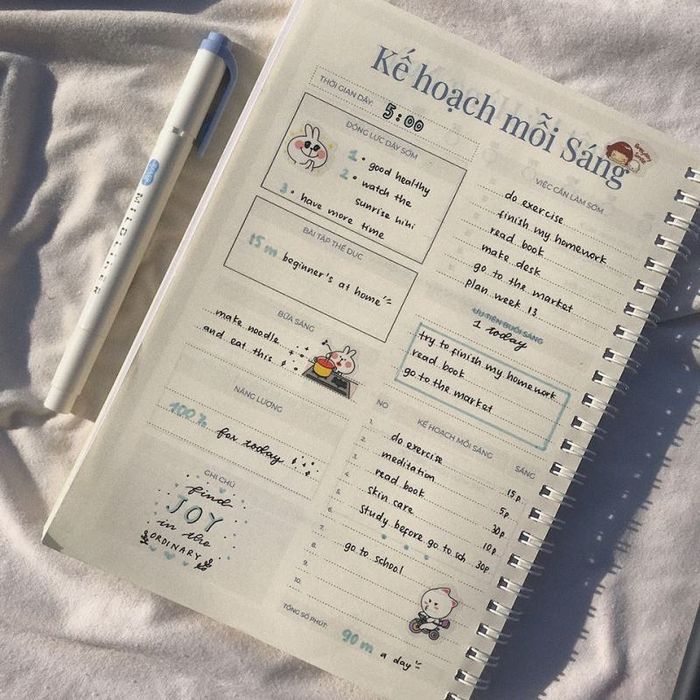 Kế hoạch mỗi Sáng
THỜI GIAN DẬY: 5:00
ĐỘNG LỰC DẬY SỚM
1 • good healthy
2 • watch the
sunrise hihi
3 • have more time
BÀI TẬP THỂ DỤC
15 m beginner's at home
BỮA SÁNG
make noodle
and eat this
NĂNG LƯỢNG
100% for today
GHI CHÚ
find
JOY
in the
ORDINARY
VIỆC CẦN LÀM SỚM
do exercise
finish my homework
read book
make desk
go to the market
plan week 13
ƯU TIÊN BUỔI SÁNG
1 today
try to finish my homework
read book
go to the market
NO KẾ HOẠCH MỖI SÁNG SÁNG
1. do exercise 15p
2. meditation 5p
3. read book 30p
4. skin care 10p
5. study before go to sch 30p
6.
7. go to school
8.
9.
10.
TỔNG SỐ PHÚT: 90 m a day